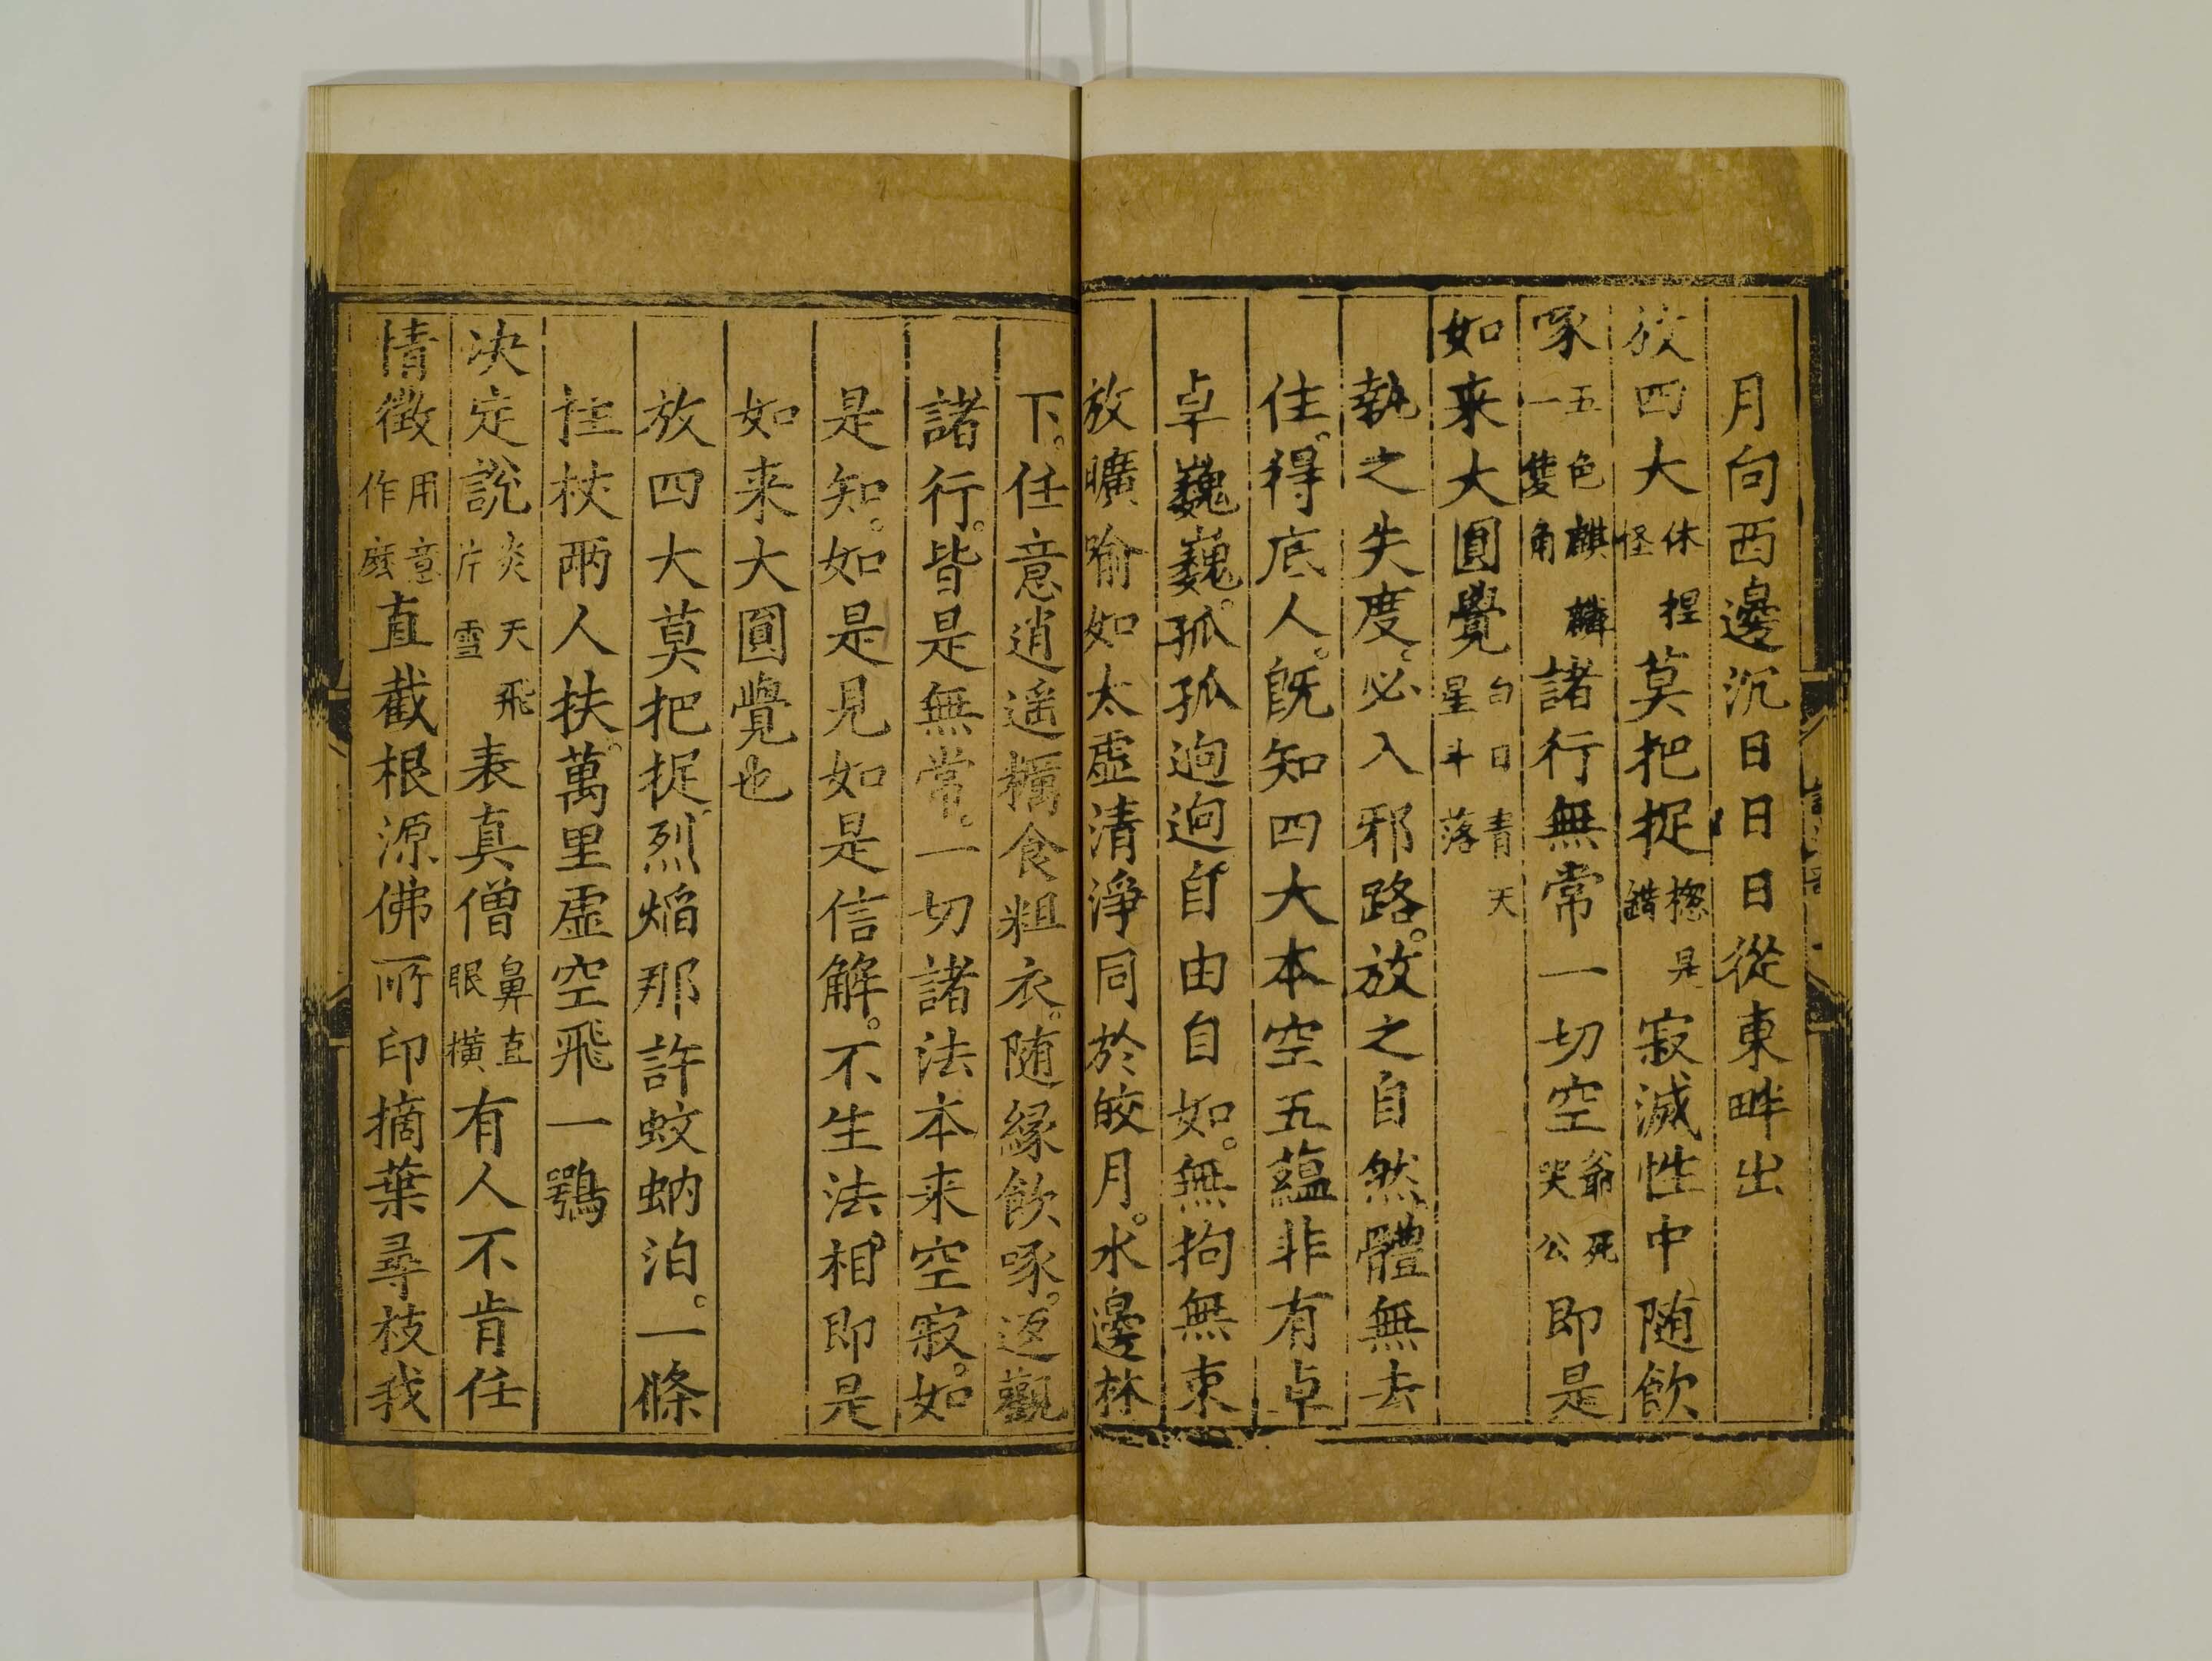 月向西邊沉日日日從東畔出
放四大休捏怪莫把捉揔是錯寂滅性中随飲
啄五色麒麟一隻角諸行無常一切空爺死哭公即是
如来大圓覺白日青天星斗落
執之失度。必入邪路。放之自然體無去
住。得底人。既知四大本空五蘊非有卓
卓巍巍。孤孤逈逈。自由自如。無拘無束
放曠喻如太虛清淨同於皎月。水邊林
下。任意逍遥糲食粗衣。随緣飲啄。返觀
諸行。皆是無常。一切諸法本来空寂。如
是知。如是見如是信解。不生法相。即是
如来大圓覺也
放四大莫把捉。烈焰那許蚊蚋泊。一條
拄杖兩人扶。萬里虛空飛一鶚
决定說炎天飛片雪表真僧鼻直眼橫有人不肯任
情徵用意作庅直截根源佛所印摘葉尋枝我